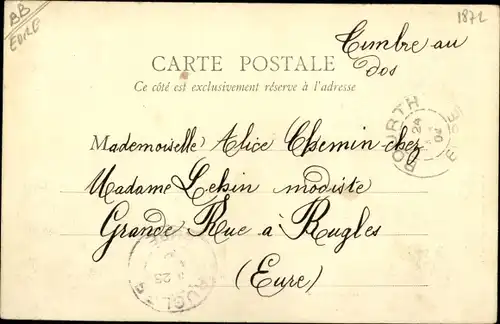 BB
EURE
1872
Timbre au
dos
CARTE POSTALE
Ce côté est exclusivement réservé à l'adresse
BOURTH
24
04
EURE
Mademoiselle Alice Chemin chez
Madame Lehin modiste
Grande Rue à Rugles
(Eure)
RUGLES
25